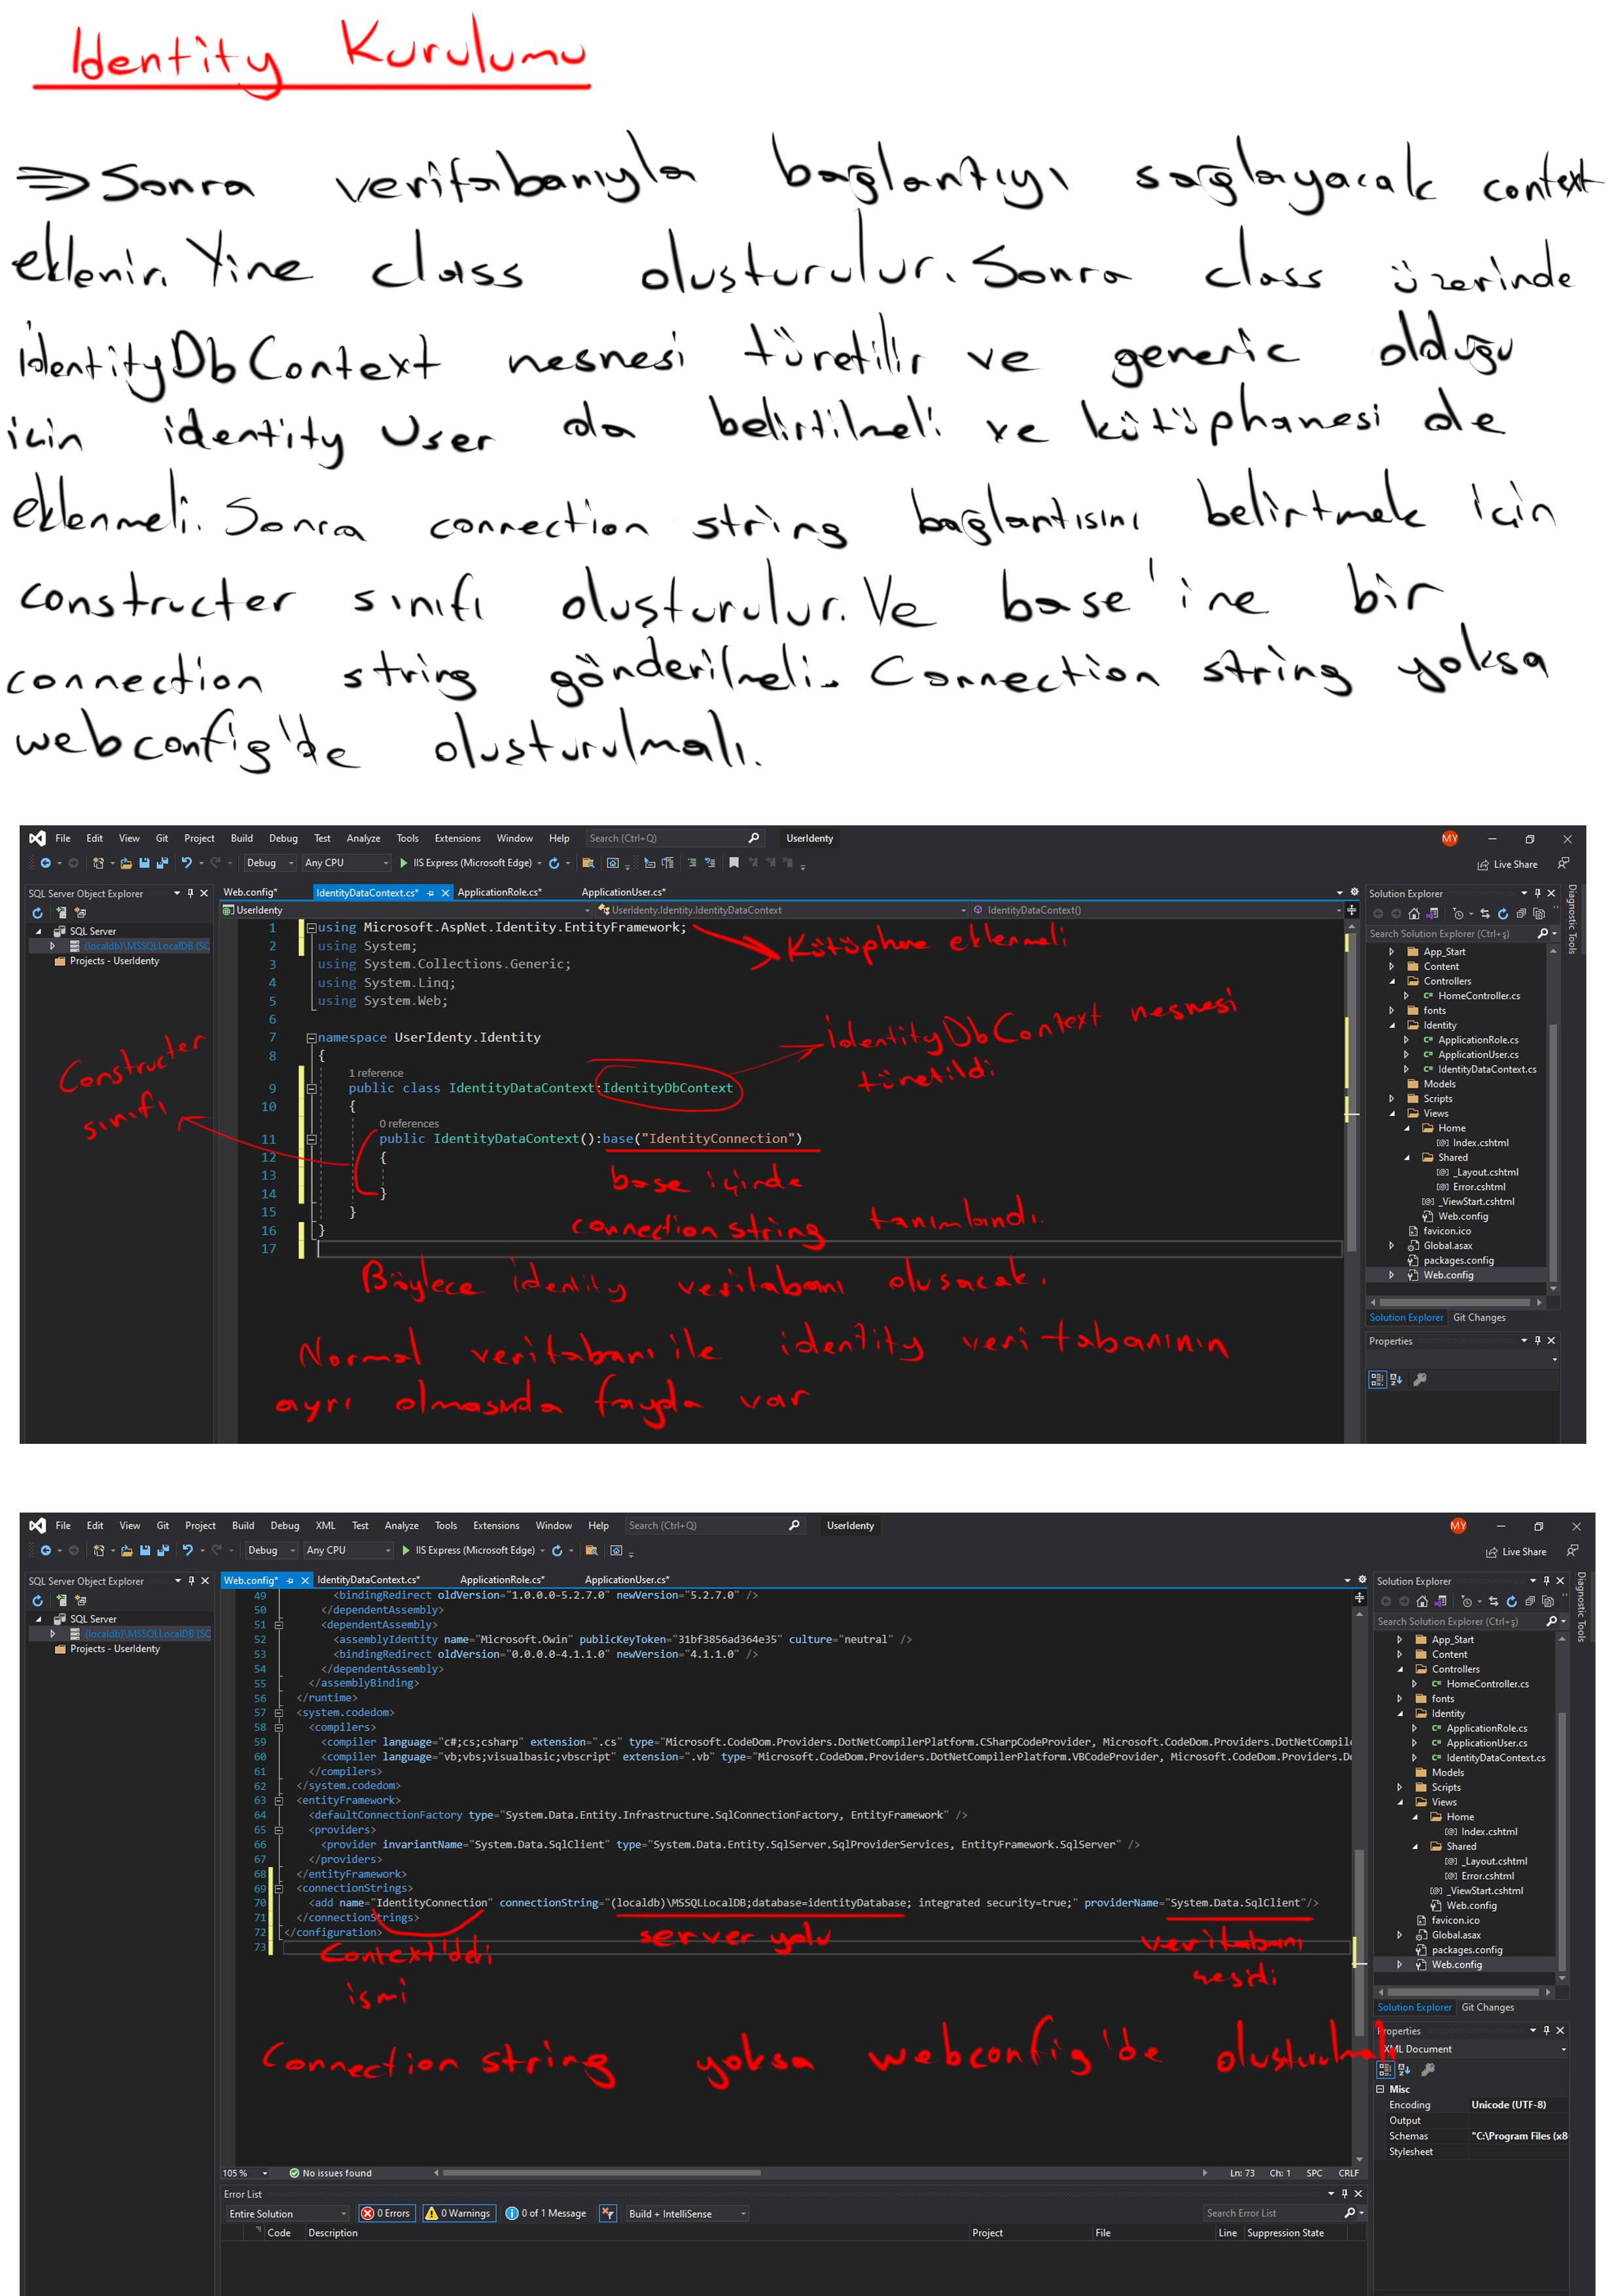 Identity Kurulumu
⇒ Sonra veritabanıyla bağlantıyı sağlayacak context
eklenir. Yine class oluşturulur. Sonra class üzerinde
identityDbContext nesnesi türetilir ve generic olduğu
için identity User da belirtilmeli ve kütüphanesi de
eklenmeli. Sonra connection string bağlantısını belirtmek için
constructer sınıfı oluşturulur. Ve base'ine bir
connection string gönderilmeli. Connection string yoksa
webconfig'de oluşturulmalı.
File Edit View Git Project Build Debug Test Analyze Tools Extensions Window Help Search (Ctrl+Q) UserIdenty MY
Debug Any CPU IIS Express (Microsoft Edge) Live Share
SQL Server Object Explorer
SQL Server
(localdb)\MSSQLLocalDB (SC
Projects - UserIdenty
Web.config* IdentityDataContext.cs* ApplicationRole.cs* ApplicationUser.cs*
UserIdenty UserIdenty.Identity.IdentityDataContext IdentityDataContext()
1 using Microsoft.AspNet.Identity.EntityFramework;
2 using System;
3 using System.Collections.Generic;
4 using System.Linq;
5 using System.Web;
6
7 namespace UserIdenty.Identity
8 {
1 reference
9 public class IdentityDataContext:IdentityDbContext
10 {
0 references
11 public IdentityDataContext():base("IdentityConnection")
12 {
13
14 }
15 }
16 }
17
Kütüphane eklenmeli
identityDbContext nesnesi
türetildi
Constructer
sınıfı
base içinde
connection string tanımlandı.
Böylece identity veritabanı olusacak.
Normal veritabanı ile identity veritabanının
ayrı olmasında fayda var
Solution Explorer
Search Solution Explorer (Ctrl+ş)
App_Start
Content
Controllers
HomeController.cs
fonts
Identity
ApplicationRole.cs
ApplicationUser.cs
IdentityDataContext.cs
Models
Scripts
Views
Home
Index.cshtml
Shared
_Layout.cshtml
Error.cshtml
_ViewStart.cshtml
Web.config
favicon.ico
Global.asax
packages.config
Web.config
Solution Explorer Git Changes
Properties
Diagnostic Tools
File Edit View Git Project Build Debug XML Test Analyze Tools Extensions Window Help Search (Ctrl+Q) UserIdenty MY
Debug Any CPU IIS Express (Microsoft Edge) Live Share
SQL Server Object Explorer
SQL Server
(localdb)\MSSQLLocalDB (SC
Projects - UserIdenty
Web.config* IdentityDataContext.cs* ApplicationRole.cs* ApplicationUser.cs*
49 <bindingRedirect oldVersion="1.0.0.0-5.2.7.0" newVersion="5.2.7.0" />
50 </dependentAssembly>
51 <dependentAssembly>
52 <assemblyIdentity name="Microsoft.Owin" publicKeyToken="31bf3856ad364e35" culture="neutral" />
53 <bindingRedirect oldVersion="0.0.0.0-4.1.1.0" newVersion="4.1.1.0" />
54 </dependentAssembly>
55 </assemblyBinding>
56 </runtime>
57 <system.codedom>
58 <compilers>
59 <compiler language="c#;cs;csharp" extension=".cs" type="Microsoft.CodeDom.Providers.DotNetCompilerPlatform.CSharpCodeProvider, Microsoft.CodeDom.Providers.DotNetCompil
60 <compiler language="vb;vbs;visualbasic;vbscript" extension=".vb" type="Microsoft.CodeDom.Providers.DotNetCompilerPlatform.VBCodeProvider, Microsoft.CodeDom.Providers.Do
61 </compilers>
62 </system.codedom>
63 <entityFramework>
64 <defaultConnectionFactory type="System.Data.Entity.Infrastructure.SqlConnectionFactory, EntityFramework" />
65 <providers>
66 <provider invariantName="System.Data.SqlClient" type="System.Data.Entity.SqlServer.SqlProviderServices, EntityFramework.SqlServer" />
67 </providers>
68 </entityFramework>
69 <connectionStrings>
70 <add name="IdentityConnection" connectionString="(localdb)\MSSQLLocalDB;database=identityDatabase; integrated security=true;" providerName="System.Data.SqlClient"/>
71 </connectionStrings>
72 </configuration>
73
Context'deki
ismi
server yolu
veritabanı
çesidi
Connection string yoksa webconfig'de olusturulmalı
105 % No issues found Ln: 73 Ch: 1 SPC CRLF
Error List
Entire Solution 0 Errors 0 Warnings 0 of 1 Message Build + IntelliSense Search Error List
Code Description Project File Line Suppression State
Solution Explorer
Search Solution Explorer (Ctrl+ş)
App_Start
Content
Controllers
HomeController.cs
fonts
Identity
ApplicationRole.cs
ApplicationUser.cs
IdentityDataContext.cs
Models
Scripts
Views
Home
Index.cshtml
Shared
_Layout.cshtml
Error.cshtml
_ViewStart.cshtml
Web.config
favicon.ico
Global.asax
packages.config
Web.config
Solution Explorer Git Changes
Properties
XML Document
Misc
Encoding Unicode (UTF-8)
Output
Schemas "C:\Program Files (x8
Stylesheet
Diagnostic Tools